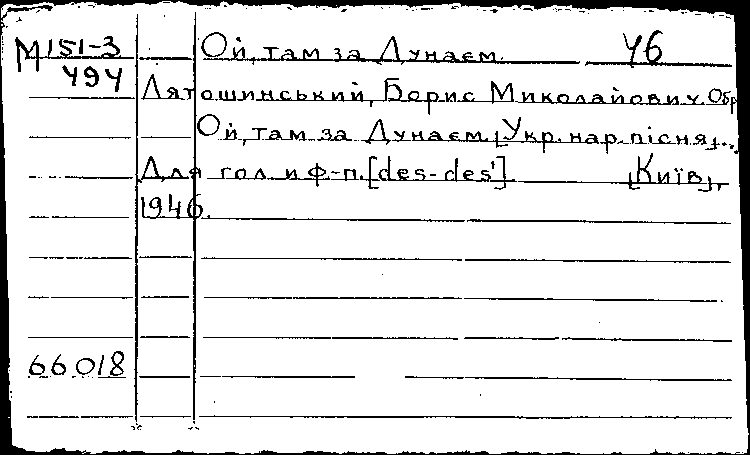 М151-3 Ой, там за Дунаєм. У6
494 Лятошинський, Борис Миколайович. Обр.
Ой, там за Дунаєм. [Укр. нар. пісня]...
Для гол. и ф-п. [des-des']. [Київ],
1946.
66.018